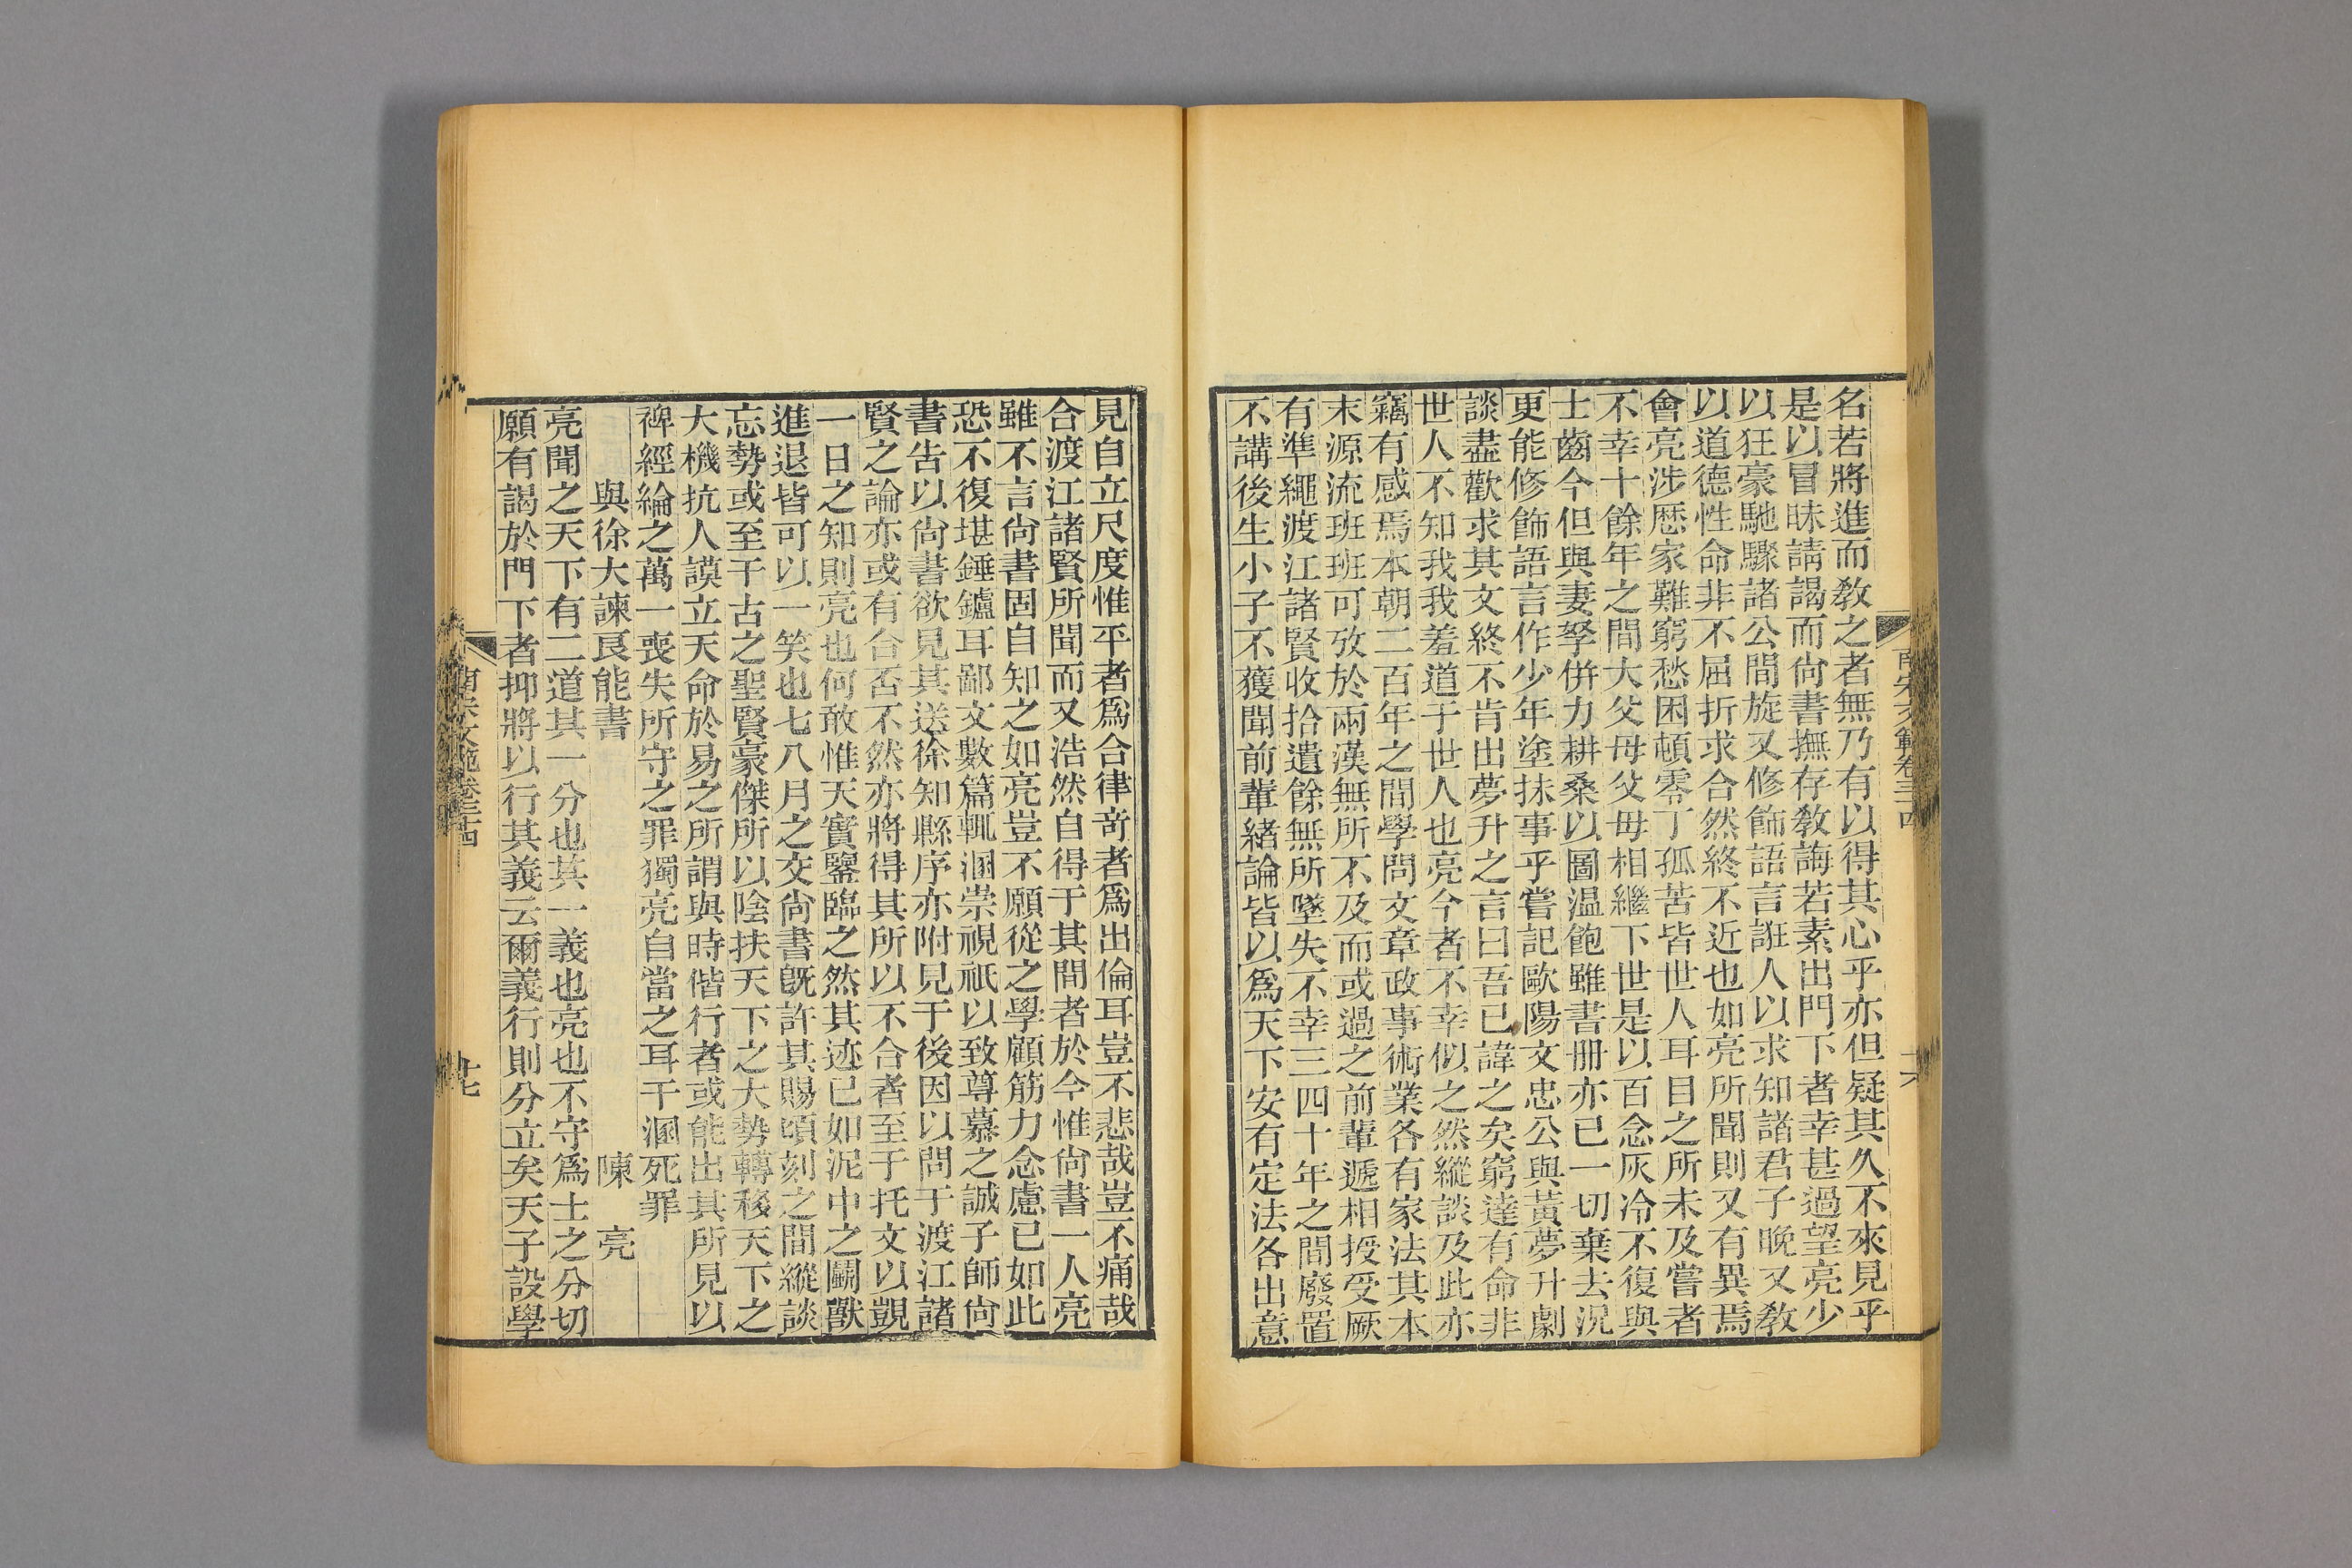 名若將進而敎之者無乃有以得其心乎亦但疑其久不來見乎
是以冒昧請謁而尙書撫存敎誨若素出門下者幸甚過望亮少
以狂豪馳驟諸公間旋又修飾語言誑人以求知諸君子晚又敎
以道德性命非不屈折求合然終不近也如亮所聞則又有異焉
會亮涉歷家難窮愁困頓零丁孤苦皆世人耳目之所未及嘗者
不幸十餘年之間大父母父母相繼下世是以百念灰冷不復與
士齒今但與妻孥併力耕桑以圖溫飽雖書冊亦已一切棄去況
更能修飾語言作少年塗抹事乎嘗記歐陽文忠公與黃夢升劇
談盡歡求其文終不肯出夢升之言曰吾已諱之矣窮達有命非
世人不知我我羞道于世人也亮今者不幸似之然縱談及此亦
竊有感焉本朝二百年之間學問文章政事術業各有家法其本
末源流班班可攷於兩漢無所不及而或過之前輩遞相授受厥
有準繩渡江諸賢收拾遺餘無所墜失不幸三四十年之間廢置
不講後生小子不獲聞前輩緒論皆以爲天下安有定法各出意
見自立尺度惟平者爲合律奇者爲出倫耳豈不悲哉豈不痛哉
合渡江諸賢所聞而又浩然自得于其間者於今惟尙書一人亮
雖不言尙書固自知之如亮豈不願從之學顧筋力念慮已如此
恐不復堪錘鑪耳鄙文數篇輒溷崇視祇以致尊慕之誠子師尙
書告以尙書欲見其送徐知縣序亦附見于後因以問于渡江諸
賢之論亦或有合否不然亦將得其所以不合者至于托文以覬
一日之知則亮也何敢惟天實鑒臨之然其迹已如泥中之鬬獸
進退皆可以一笑也七八月之交尙書旣許其賜頃刻之間縱談
忘勢或至干古之聖賢豪傑所以陰扶天下之大勢轉移天下之
大機抗人謨立天命於易之所謂與時偕行者或能出其所見以
裨經綸之萬一喪失所守之罪獨亮自當之耳干溷死罪
與徐大諫良能書　陳亮
亮聞之天下有二道其一分也其一義也亮也不守爲士之分切
願有謁於門下者抑將以行其義云爾義行則分立矣天子設學
南宋文範卷三十四